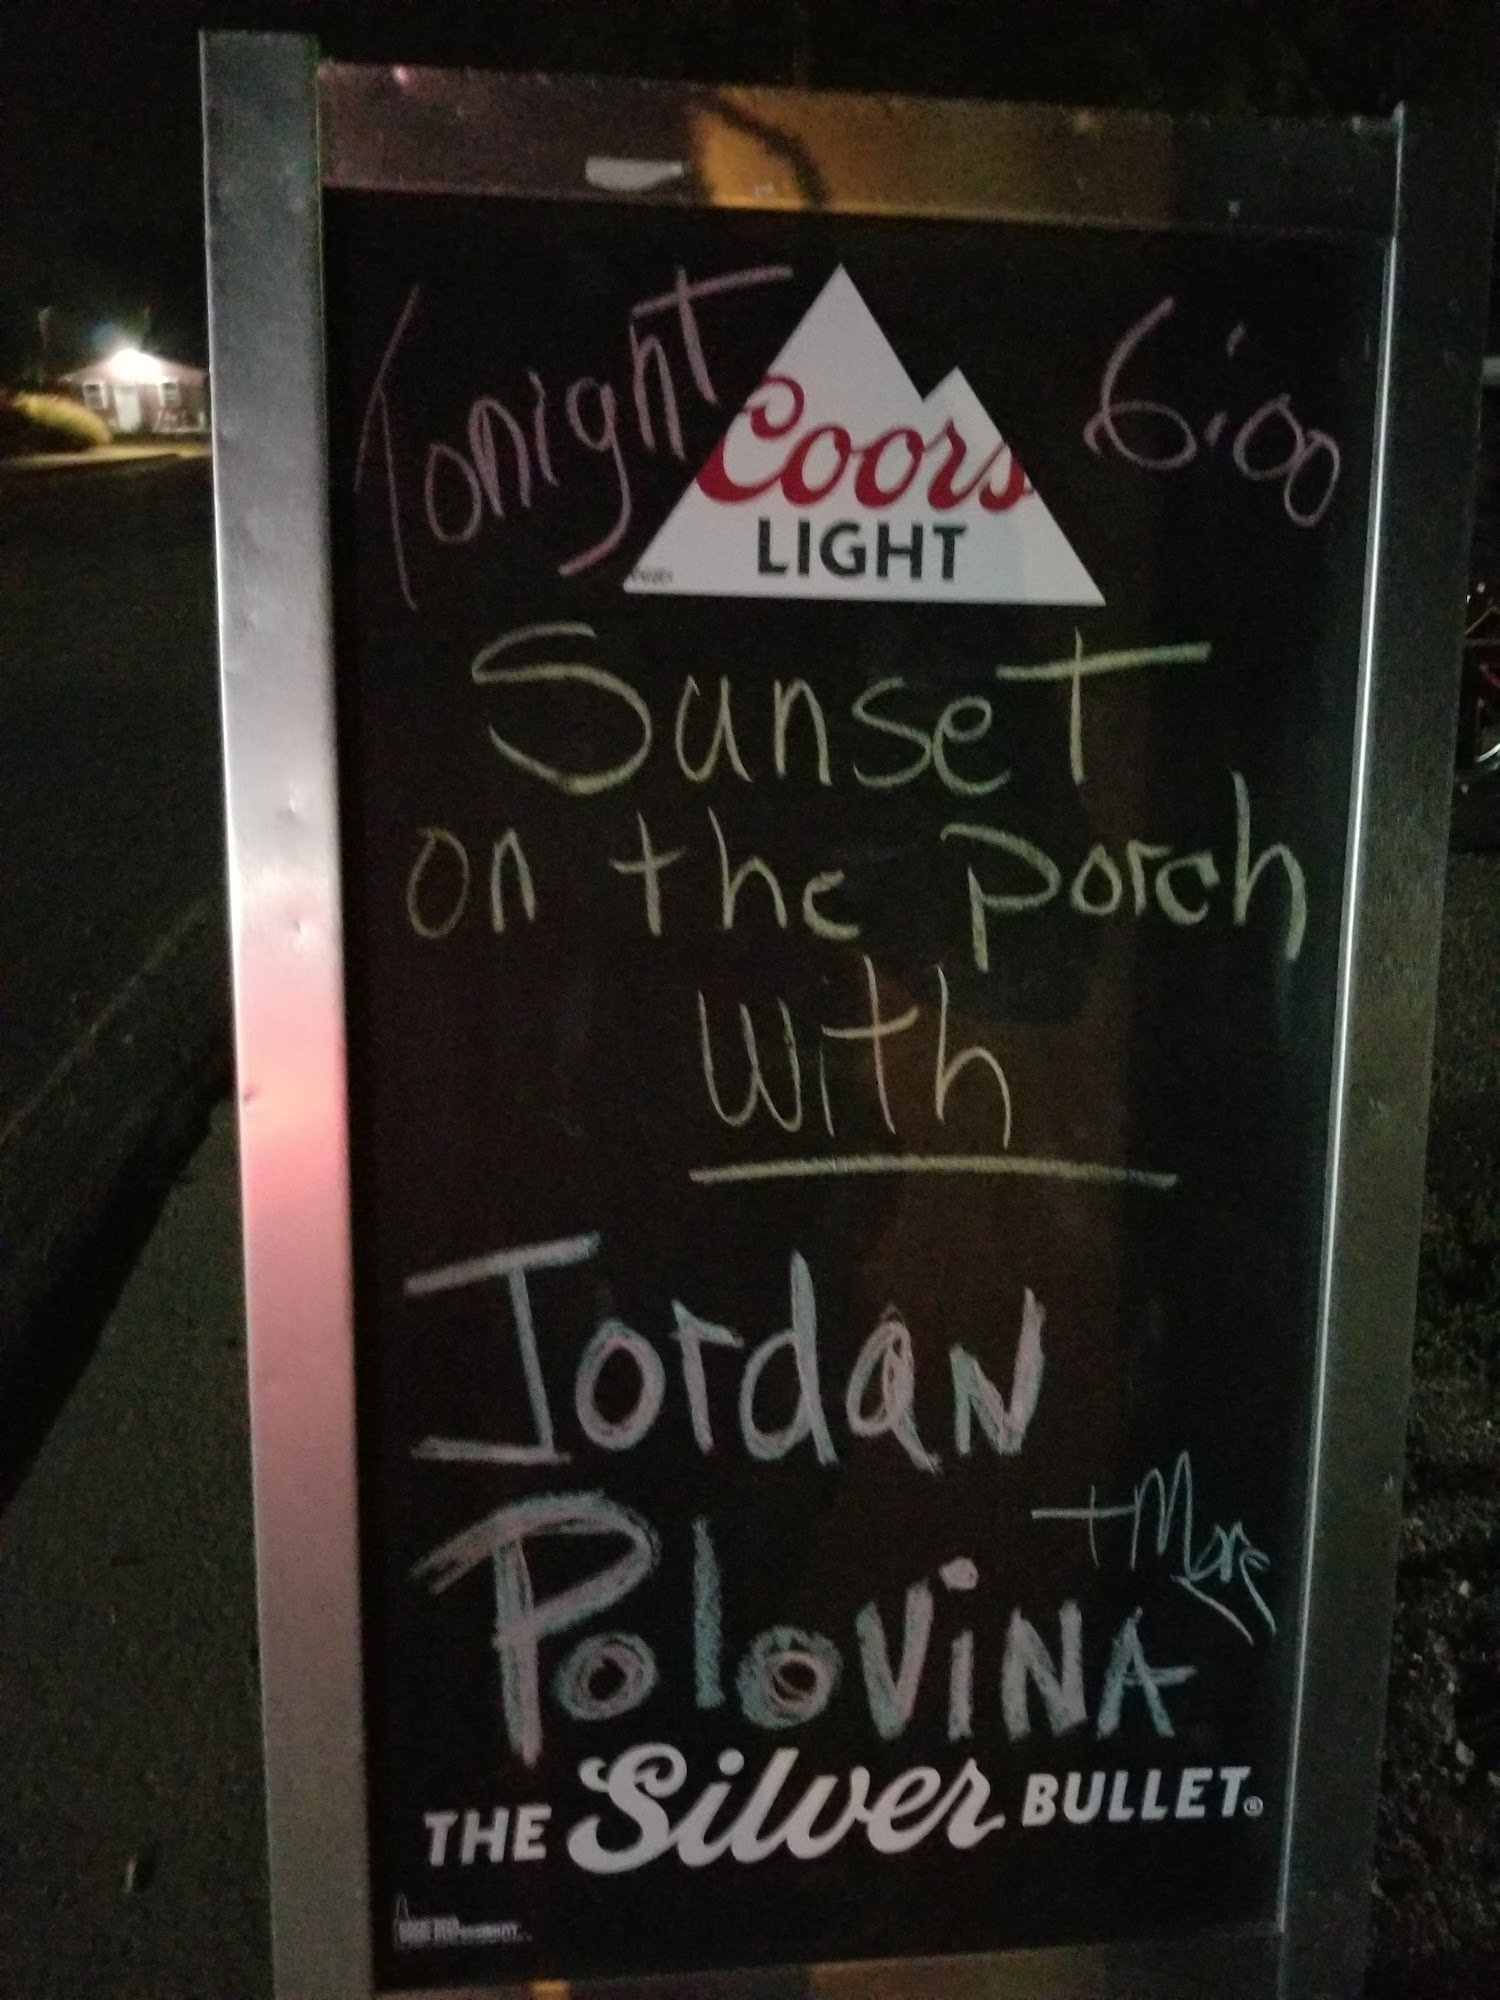 Tonight
6:00
Coors
LIGHT
Sunset
on the Porch
with
Jordan
Polovina
+More
THE Silver BULLET®